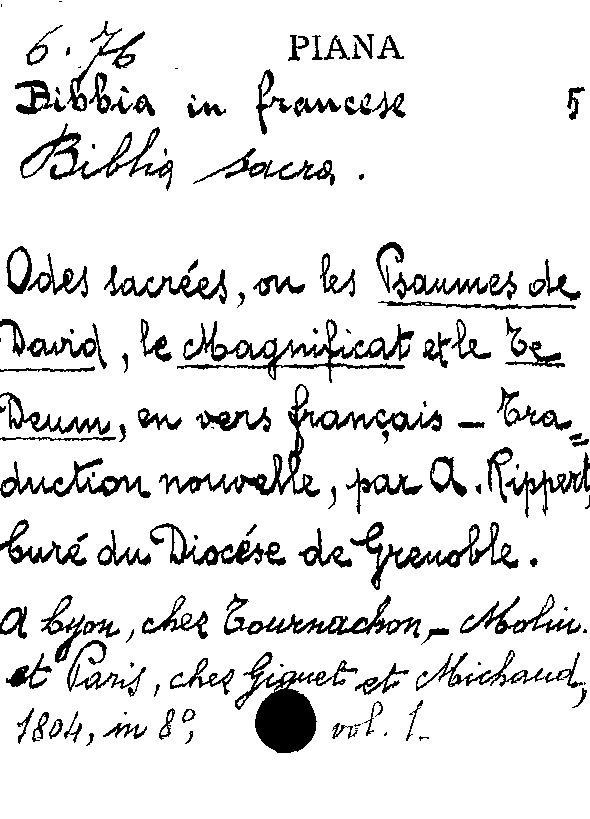 6.76 PIANA
Bibbia in francese 5
Biblia sacra.
Odes sacrées, ou les Psaumes de
David, le Magnificat et le Te
Deum, en vers français - Tra=
duction nouvelle, par A. Rippert,
Curé du Diocèse de Grenoble.
A Lyon, chez Tournachon-Molin.
et Paris, chez Giguet et Michaud,
1804, in 8º, vol. 1.